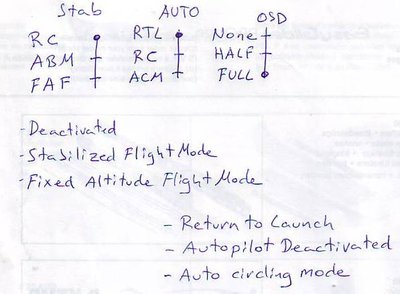 Stab AUTO OSD
RC RTL None
ABM RC HALF
FAF ACM FULL
- Deactivated
- Stabilized Flight Mode
- Fixed Altitude Flight Mode
- Return to Launch
- Autopilot Deactivated
- Auto circling mode